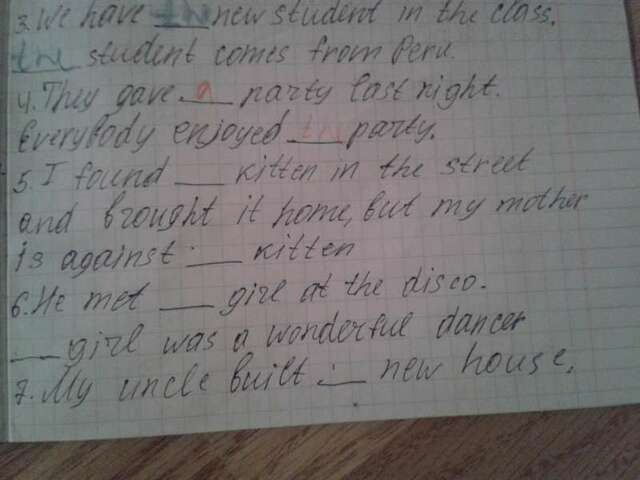 3. We have ___ new student in the class.
the student comes from Peru.
4. They gave a party last night.
Everybody enjoyed ___ party.
5. I found ___ kitten in the street
and brought it home, but my mother
is against ___ kitten
6. He met ___ girl at the disco.
___ girl was a wonderful dancer
7. My uncle built ___ new house.